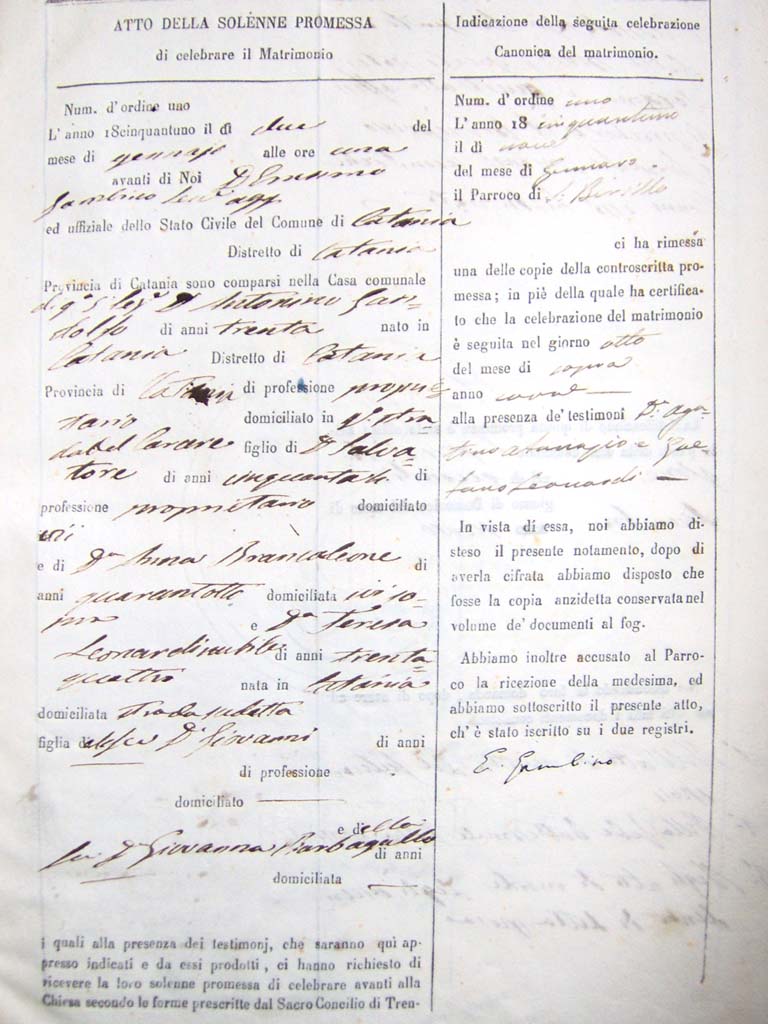 ATTO DELLA SOLENNE PROMESSA
di celebrare il Matrimonio
Num. d'ordine uno
L'anno 18cinquantuno il dì due del
mese di gennajo alle ore una
avanti di Noi D. Erasmo
Gambino
ed uffiziale dello Stato Civile del Comune di Catania
Distretto di Catania
Provincia di Catania sono comparsi nella Casa comunale
D. Antonino Gan-
dolfo di anni trenta nato in
Catania Distretto di Catania
Provincia di Catania di professione proprie
tario domiciliato in
figlio di D. Salva-
tore di anni di
professione proprietario domiciliato
ivi
e di D.a Anna Brancaleone di
anni quarantotto domiciliata ivi
e D.a Teresa
Leonardi nubile di anni trenta
quattro nata in Catania
domiciliata strada sudetta
figlia del fu D. Giovanni di anni
di professione
domiciliato
e della
fu D.a Giovanna Barbagallo
di anni
domiciliata
i quali alla presenza dei testimonj, che saranno quì ap-
presso indicati e da essi prodotti, ci hanno richiesto di
ricevere la loro solenne promessa di celebrare avanti alla
Chiesa secondo le forme prescritte dal Sacro Concilio di Tren-
Indicazione della seguita celebrazione
Canonica del matrimonio.
Num. d'ordine uno
L'anno 18 cinquantuno
il dì nove
del mese di Gennaro
il Parroco di S. Birillo
ci ha rimessa
una delle copie della controscritta pro-
messa; in piè della quale ha certifica-
to che la celebrazione del matrimonio
è seguita nel giorno otto
del mese di sopra
anno
alla presenza de' testimoni D. Ago-
stino Atanasio e Gae-
tano Leonardi
In vista di essa, noi abbiamo di-
steso il presente notamento, dopo di
averla cifrata abbiamo disposto che
fosse la copia anzidetta conservata nel
volume de' documenti al fog.
Abbiamo inoltre accusato al Parro-
co la ricezione della medesima, ed
abbiamo sottoscritto il presente atto,
ch'è stato iscritto su i due registri.
E. Gambino